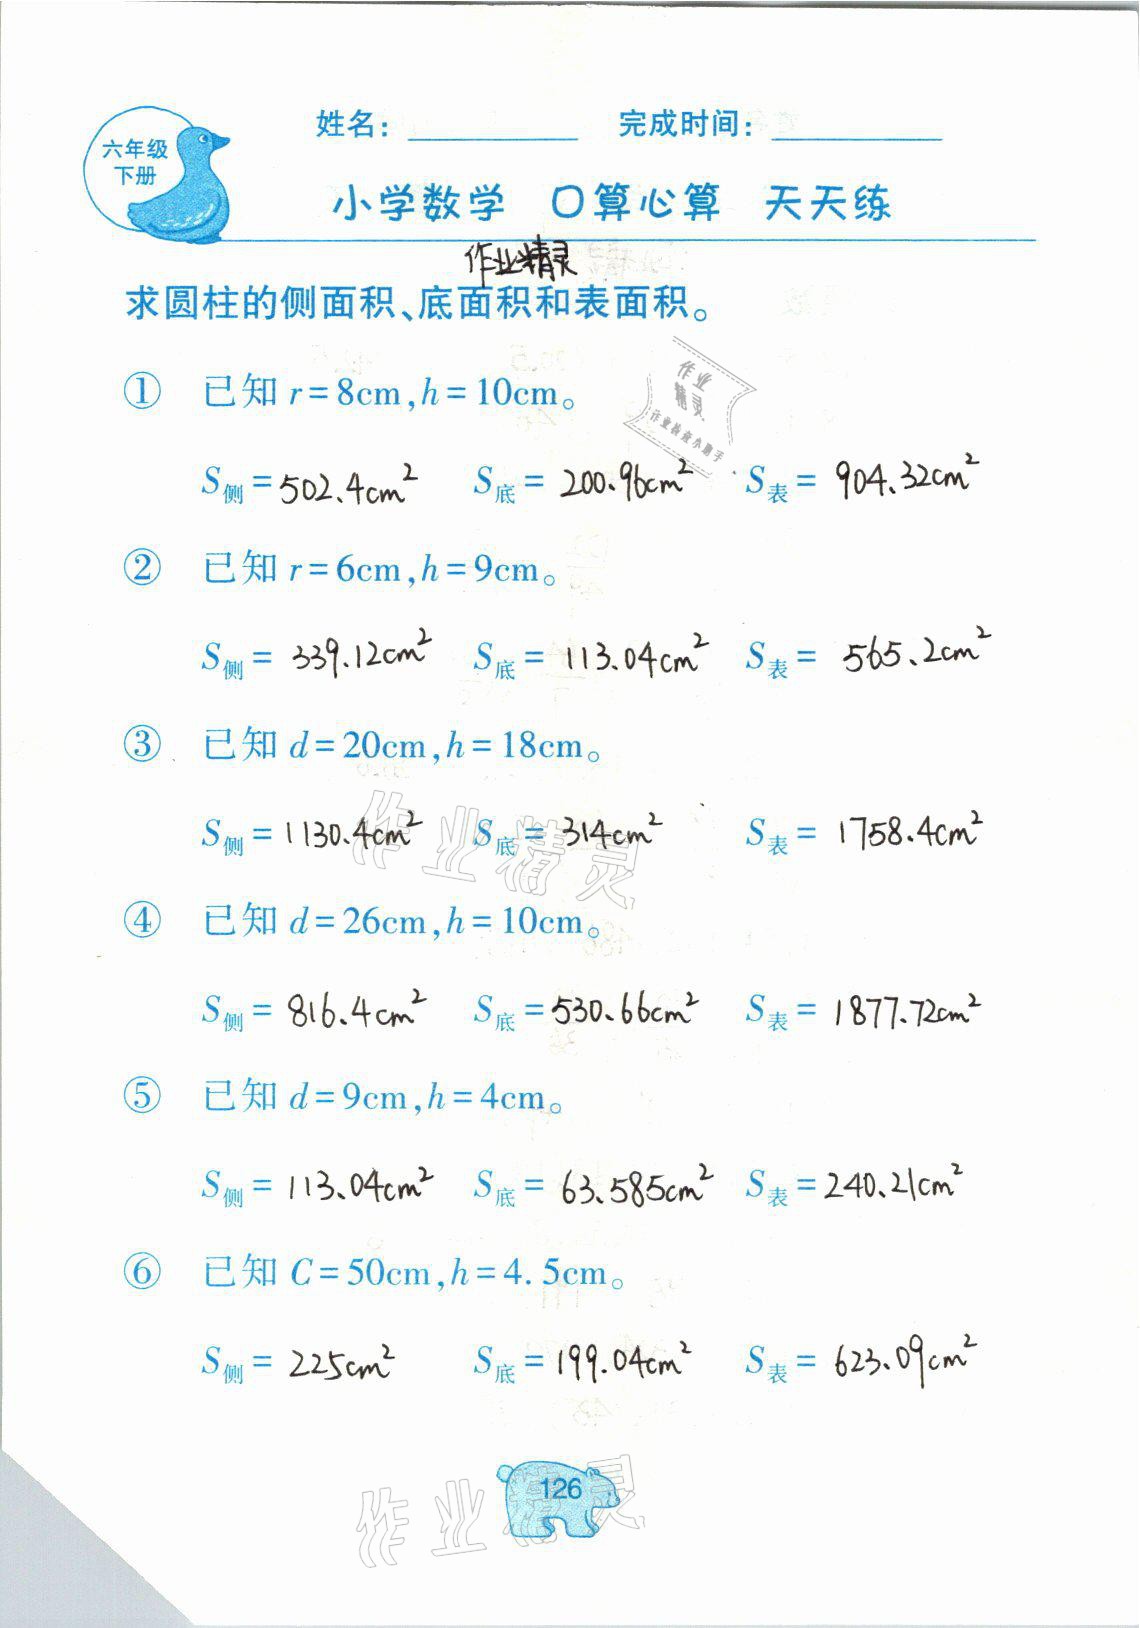 六年级
下册
姓名：
完成时间：
小学数学 口算心算 天天练
作业精灵
求圆柱的侧面积、底面积和表面积。
作业
精灵
作业检查小助手
① 已知 r=8cm,h=10cm。
S侧=502.4cm² S底=200.96cm² S表=904.32cm²
② 已知 r=6cm,h=9cm。
S侧=339.12cm² S底=113.04cm² S表=565.2cm²
③ 已知 d=20cm,h=18cm。
S侧=1130.4cm² S底=314cm² S表=1758.4cm²
作业精灵
④ 已知 d=26cm,h=10cm。
S侧=816.4cm² S底=530.66cm² S表=1877.72cm²
⑤ 已知 d=9cm,h=4cm。
S侧=113.04cm² S底=63.585cm² S表=240.21cm²
⑥ 已知 C=50cm,h=4.5cm。
S侧=225cm² S底=199.04cm² S表=623.09cm²
126
作业精灵